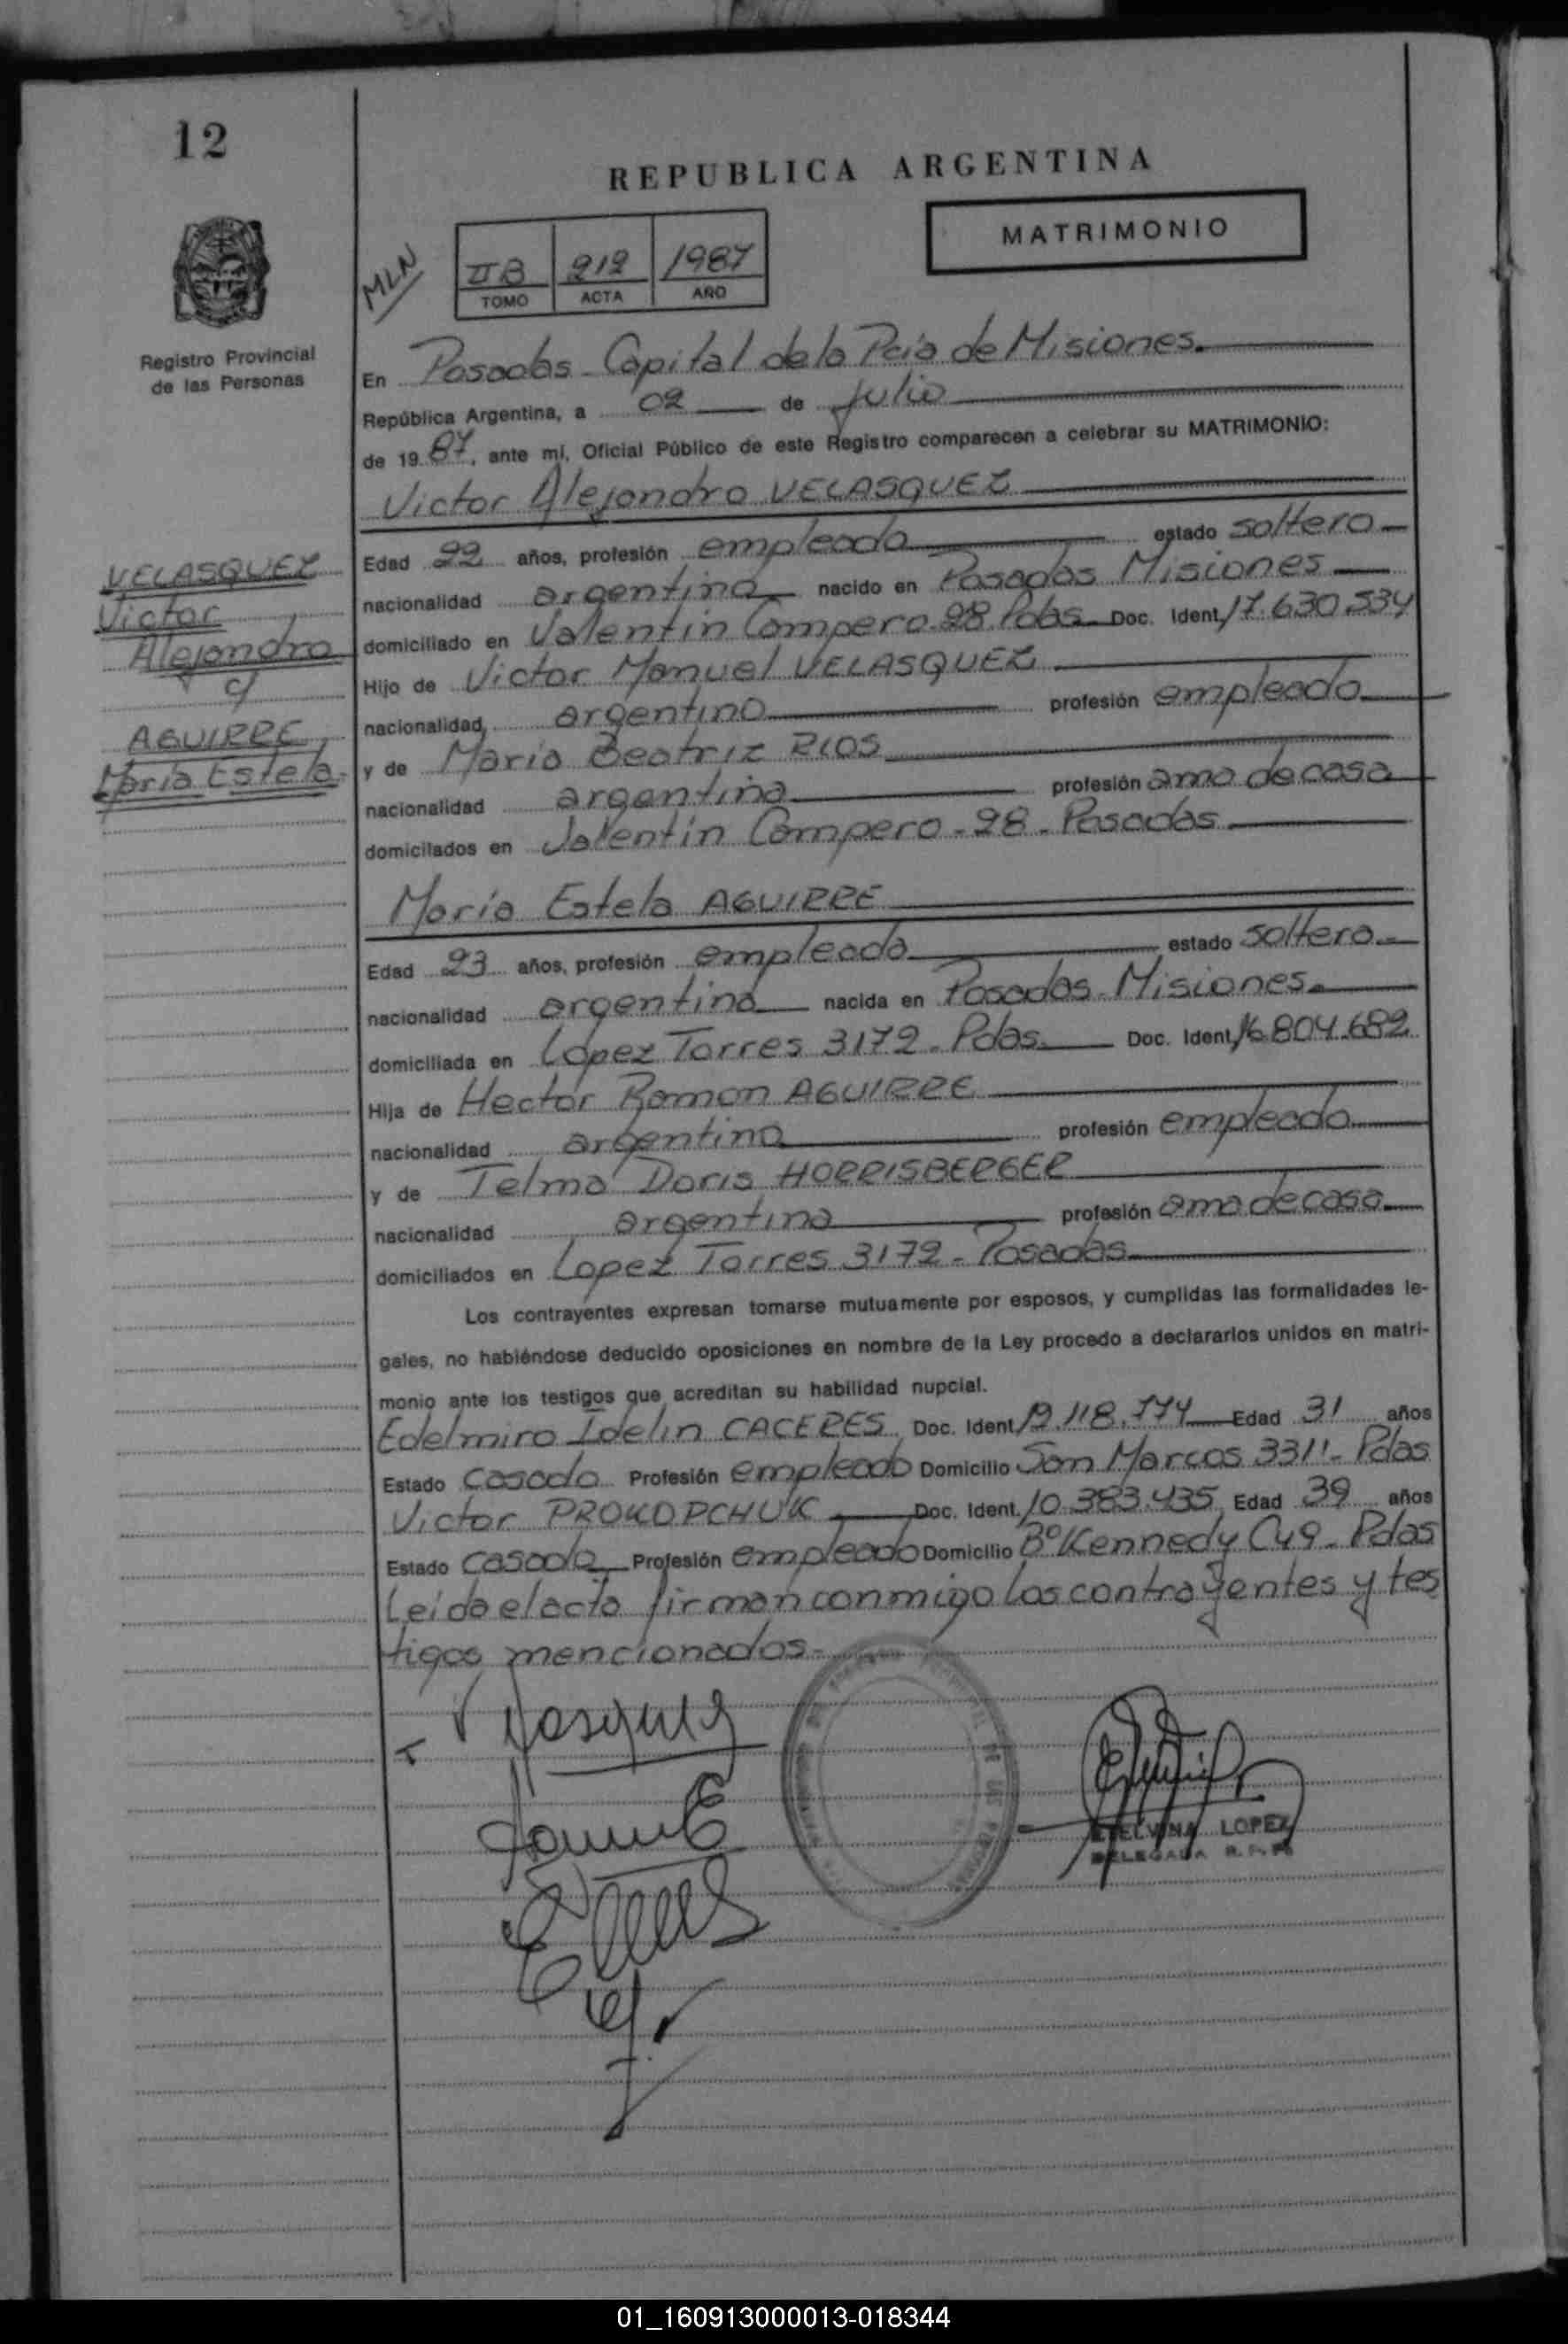 12
REPUBLICA ARGENTINA
MATRIMONIO
MLN
II B 212 1987
TOMO ACTA AÑO
Registro Provincial
de las Personas
En Posadas - Capital de la Pcia de Misiones.
República Argentina, a 02 de Julio
de 19 87, ante mí, Oficial Público de este Registro comparecen a celebrar su MATRIMONIO:
Victor Alejandro VELASQUEZ
Edad 22 años, profesión empleado estado soltero
nacionalidad argentina nacido en Posadas Misiones
domiciliado en Valentín Compero - 28 Pdas Doc. Ident. 17.630.534
Hijo de Victor Manuel VELASQUEZ
nacionalidad argentino profesión empleado
y de María Beatriz RIOS
nacionalidad argentina profesión ama de casa
domicilados en Valentín Compero - 28 - Posadas
VELASQUEZ
Victor
Alejandro
c/
AGUIRRE
María Estela
María Estela AGUIRRE
Edad 23 años, profesión empleada estado soltera
nacionalidad argentina nacida en Posadas - Misiones
domiciliada en López Torres 3172 - Pdas. Doc. Ident. 16.804.682
Hija de Hector Ramon AGUIRRE
nacionalidad argentino profesión empleado
y de Telma Doris HORRISBERGER
nacionalidad argentina profesión ama de casa
domiciliados en Lopez Torres 3172 - Posadas
Los contrayentes expresan tomarse mutuamente por esposos, y cumplidas las formalidades le-
gales, no habiéndose deducido oposiciones en nombre de la Ley procedo a declararlos unidos en matri-
monio ante los testigos que acreditan su habilidad nupcial.
Edelmiro Idelin CACERES Doc. Ident. 12.118.774 Edad 31 años
Estado casado Profesión empleado Domicilio San Marcos 3311 - Pdas
Victor PROKOPCHUK Doc. Ident. 10.383.435 Edad 39 años
Estado casado Profesión empleado Domicilio Bº Kennedy C49 - Pdas
Leída el acta firman conmigo los contrayentes y tes
tigos mencionados -
ETELVINA LOPEZ
DELEGADA R.P.P.
01_160913000013-018344